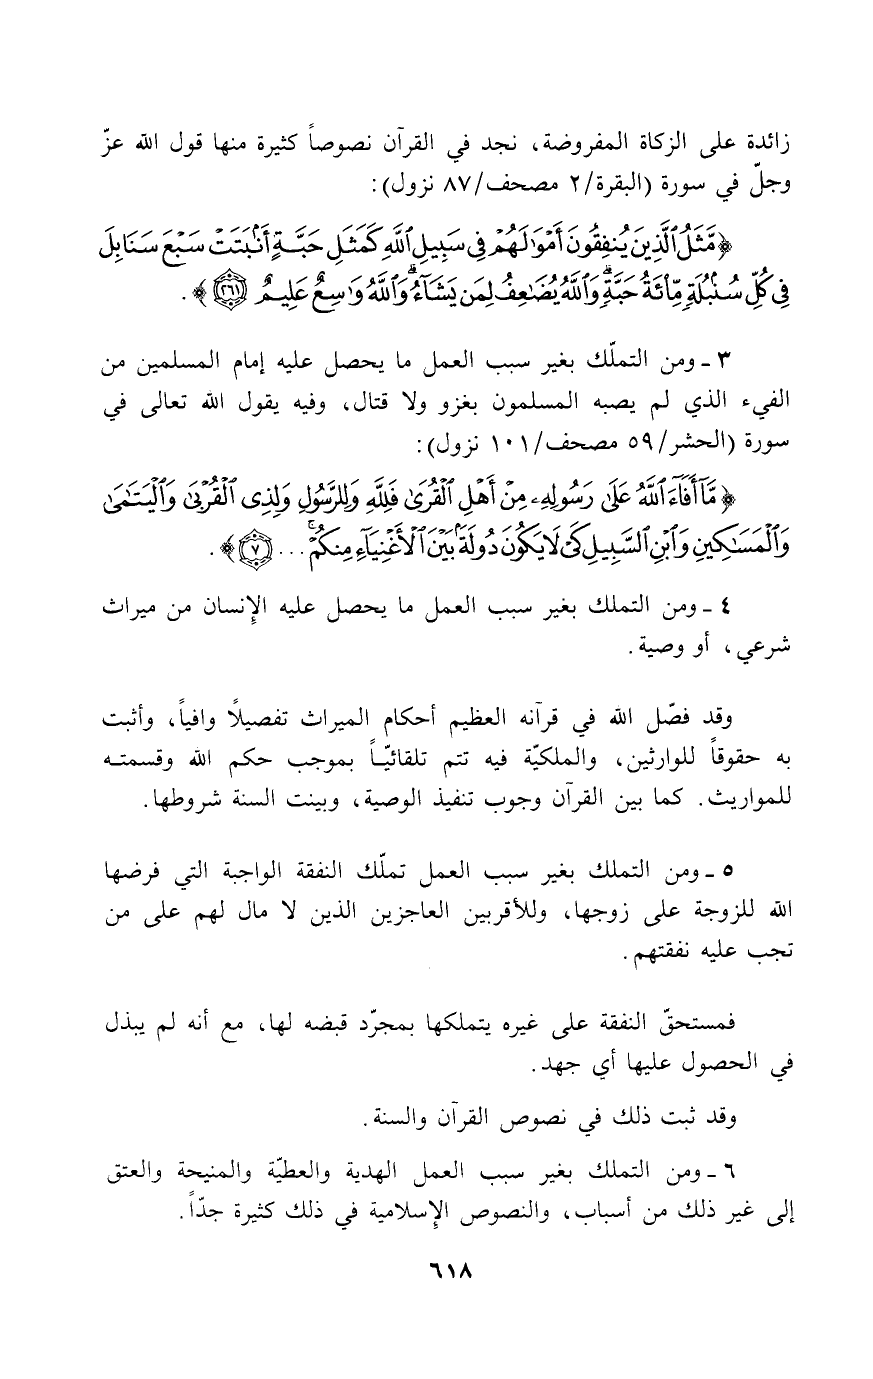 زائدة على الزكاة المفروضة، نجد في القرآن نصوصاً كثيرة منها قول الله عزّ
وجلّ في سورة (البقرة/٢ مصحف/٨٧ نزول):
﴿مَّثَلُ ٱلَّذِينَ يُنفِقُونَ أَمْوَٰلَهُمْ فِي سَبِيلِ ٱللَّهِ كَمَثَلِ حَبَّةٍ أَنۢبَتَتْ سَبْعَ سَنَابِلَ
فِي كُلِّ سُنۢبُلَةٍ مِّا۟ئَةُ حَبَّةٍ ۗ وَٱللَّهُ يُضَٰعِفُ لِمَن يَشَآءُ ۗ وَٱللَّهُ وَٰسِعٌ عَلِيمٌ (٢٦١)﴾.
٣ - ومن التملّك بغير سبب العمل ما يحصل عليه إمام المسلمين من
الفيء الذي لم يصبه المسلمون بغزو ولا قتال، وفيه يقول الله تعالى في
سورة (الحشر/٥٩ مصحف/١٠١ نزول):
﴿مَّآ أَفَآءَ ٱللَّهُ عَلَىٰ رَسُولِهِۦ مِنْ أَهْلِ ٱلْقُرَىٰ فَلِلَّهِ وَلِلرَّسُولِ وَلِذِى ٱلْقُرْبَىٰ وَٱلْيَتَٰمَىٰ
وَٱلْمَسَٰكِينِ وَٱبْنِ ٱلسَّبِيلِ كَىْ لَا يَكُونَ دُولَةًۢ بَيْنَ ٱلْأَغْنِيَآءِ مِنكُمْ ۚ ... (٧)﴾.
٤ - ومن التملك بغير سبب العمل ما يحصل عليه الإنسان من ميراث
شرعي، أو وصية.
وقد فصّل الله في قرآنه العظيم أحكام الميراث تفصيلاً وافياً، وأثبت
به حقوقاً للوارثين، والملكيّة فيه تتم تلقائيّاً بموجب حكم الله وقسمته
للمواريث. كما بين القرآن وجوب تنفيذ الوصية، وبينت السنة شروطها.
٥ - ومن التملك بغير سبب العمل تملّك النفقة الواجبة التي فرضها
الله للزوجة على زوجها، وللأقربين العاجزين الذين لا مال لهم على من
تجب عليه نفقتهم.
فمستحقّ النفقة على غيره يتملكها بمجرّد قبضه لها، مع أنه لم يبذل
في الحصول عليها أي جهد.
وقد ثبت ذلك في نصوص القرآن والسنة.
٦ - ومن التملك بغير سبب العمل الهدية والعطيّة والمنيحة والعتق
إلى غير ذلك من أسباب، والنصوص الإسلامية في ذلك كثيرة جدّاً.
٦١٨